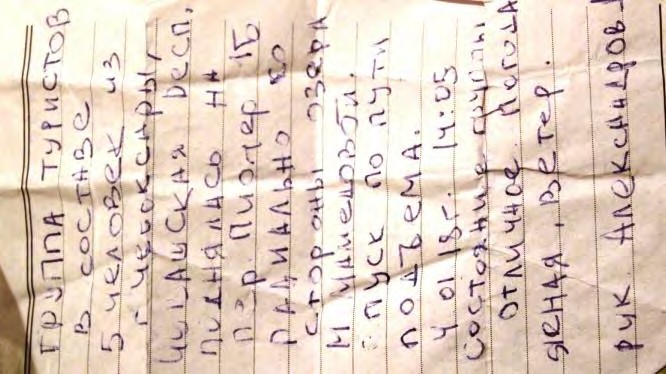 ГРУППА ТУРИСТОВ
В СОСТАВЕ
5 ЧЕЛОВЕК ИЗ
Г ЧЕБОКСАРЫ
ЧУВАШСКАЯ РЕСП.
ПОДНЯЛАСЬ НА
ПЕР. ПИОНЕР 1Б
РАДИАЛЬНО СО
СТОРОНЫ ОЗЕРА
СПУСК ПО ПУТИ
ПОДЪЕМА.
4 01 18г. 14:05
СОСТОЯНИЕ ГРУППЫ
ОТЛИЧНОЕ. ПОГОДА
ЯСНАЯ, ВЕТЕР.
РУК АЛЕКСАНДРОВ